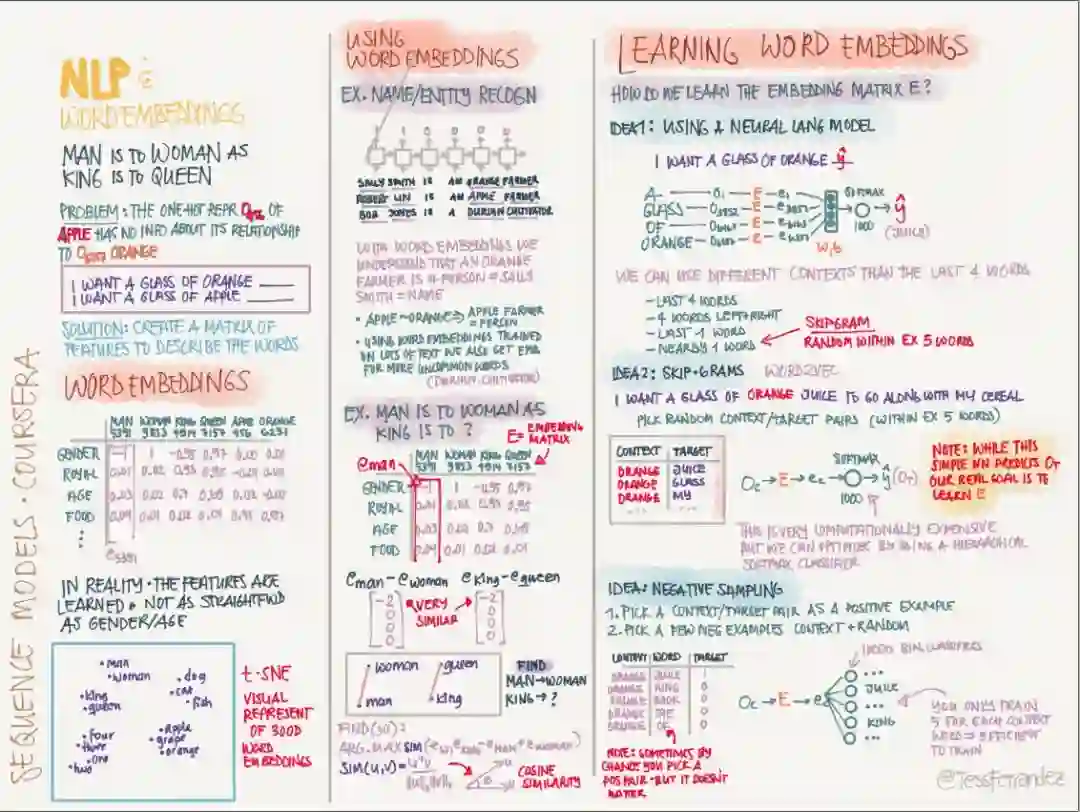 SEQUENCE MODELS · COURSERA
NLP &
WORD EMBEDDINGS
MAN IS TO WOMAN AS
KING IS TO QUEEN
PROBLEM: THE ONE-HOT REPR OF
APPLE HAS NO INFO ABOUT ITS RELATIONSHIP
TO ORANGE
I WANT A GLASS OF ORANGE ____
I WANT A GLASS OF APPLE ____
SOLUTION: CREATE A MATRIX OF
FEATURES TO DESCRIBE THE WORDS
WORD EMBEDDINGS
MAN WOMAN KING QUEEN APPLE ORANGE
5391 9853 4914 7157 456 6257
GENDER -1 1 -0.95 0.97 0.00 0.00
ROYAL 0.01 0.02 0.93 0.95
AGE 0.03 0.02 0.7
FOOD 0.04 0.01 0.02 0.01 0.95 0.97
e5391
IN REALITY · THE FEATURES ARE
LEARNED & NOT AS STRAIGHTFWD
AS GENDER/AGE
man
woman
dog
king
queen
cat
fish
four
three
one
two
apple
grape
orange
t-SNE
VISUAL
REPRESENT
OF 300D
WORD
EMBEDDINGS
USING
WORD EMBEDDINGS
EX. NAME/ENTITY RECOGN
1 1 0 0 0 0
SALLY SMITH IS AN ORANGE FARMER
ROBERT LIN IS AN APPLE FARMER
BOB JONES IS A DURIAN CULTIVATOR
WITH WORD EMBEDDINGS WE
UNDERSTAND THAT AN ORANGE
FARMER IS A PERSON ⇒ SALLY
SMITH = NAME
• APPLE ~ORANGE ⇒ APPLE FARMER
= PERSON
• USING WORD EMBEDDINGS TRAINED
ON LOTS OF TEXT WE ALSO GET EMB
FOR MORE UNCOMMON WORDS
(DURIAN, CULTIVATOR)
EX. MAN IS TO WOMAN AS
KING IS TO ?
E= EMBEDDING
MATRIX
eman
MAN WOMAN KING QUEEN
5391 9853 4914 7157
GENDER -1 1 -0.95 0.97
ROYAL 0.01 0.02 0.93 0.95
AGE 0.03 0.02 0.7
FOOD 0.04 0.01 0.02 0.01
eman-ewoman eking-equeen
-2 0 0 0
VERY
SIMILAR
-2 0 0 0
woman queen
man king
FIND
MAN→WOMAN
KING→?
FIND(w):
ARG MAX SIM(ew, eKING-eMAN+eWOMAN)
SIM(u,v)=
COSINE
SIMILARITY
LEARNING WORD EMBEDDINGS
HOW DO WE LEARN THE EMBEDDING MATRIX E?
IDEA1: USING A NEURAL LANG MODEL
I WANT A GLASS OF ORANGE ŷ
A
GLASS
OF
ORANGE
E
E
E
E
W,b
SOFTMAX
1000
ŷ
(JUICE)
WE CAN USE DIFFERENT CONTEXTS THAN THE LAST 4 WORDS
-LAST 4 WORDS
-4 WORDS LEFT+RIGHT
-LAST 1 WORD
-NEARBY 1 WORD
SKIPGRAM
RANDOM WITHIN EX 5 WORDS
IDEA2: SKIP-GRAMS WORD2VEC
I WANT A GLASS OF ORANGE JUICE TO GO ALONG WITH MY CEREAL
PICK RANDOM CONTEXT/TARGET PAIRS (WITHIN EX 5 WORDS)
CONTEXT TARGET
ORANGE JUICE
ORANGE GLASS
ORANGE MY
SOFTMAX
Oc→E→ec→○→ŷ(Ot)
1000
NOTE: WHILE THIS
SIMPLE NN PREDICTS Ot
OUR REAL GOAL IS TO
LEARN E
THIS IS VERY COMPUTATIONALLY EXPENSIVE
BUT WE CAN OPTIMIZE BY USING A HIERARCHICAL
SOFTMAX CLASSIFIER
IDEA: NEGATIVE SAMPLING
1. PICK A CONTEXT/TARGET PAIR AS A POSITIVE EXAMPLE
2. PICK A FEW NEG EXAMPLES CONTEXT+RANDOM
CONTEXT WORD TARGET
ORANGE JUICE 1
ORANGE KING 0
ORANGE BOOK 0
ORANGE THE 0
ORANGE OF 0
NOTE: SOMETIMES BY
CHANCE YOU PICK A
POS PAIR - BUT IT DOESN'T
MATTER
Oc→E→ec
BIN CLASSIFIERS
JUICE
KING
YOU ONLY TRAIN
5 FOR EACH CONTEXT
WORD = EFFICIENT
TO TRAIN
@TessFerrandez